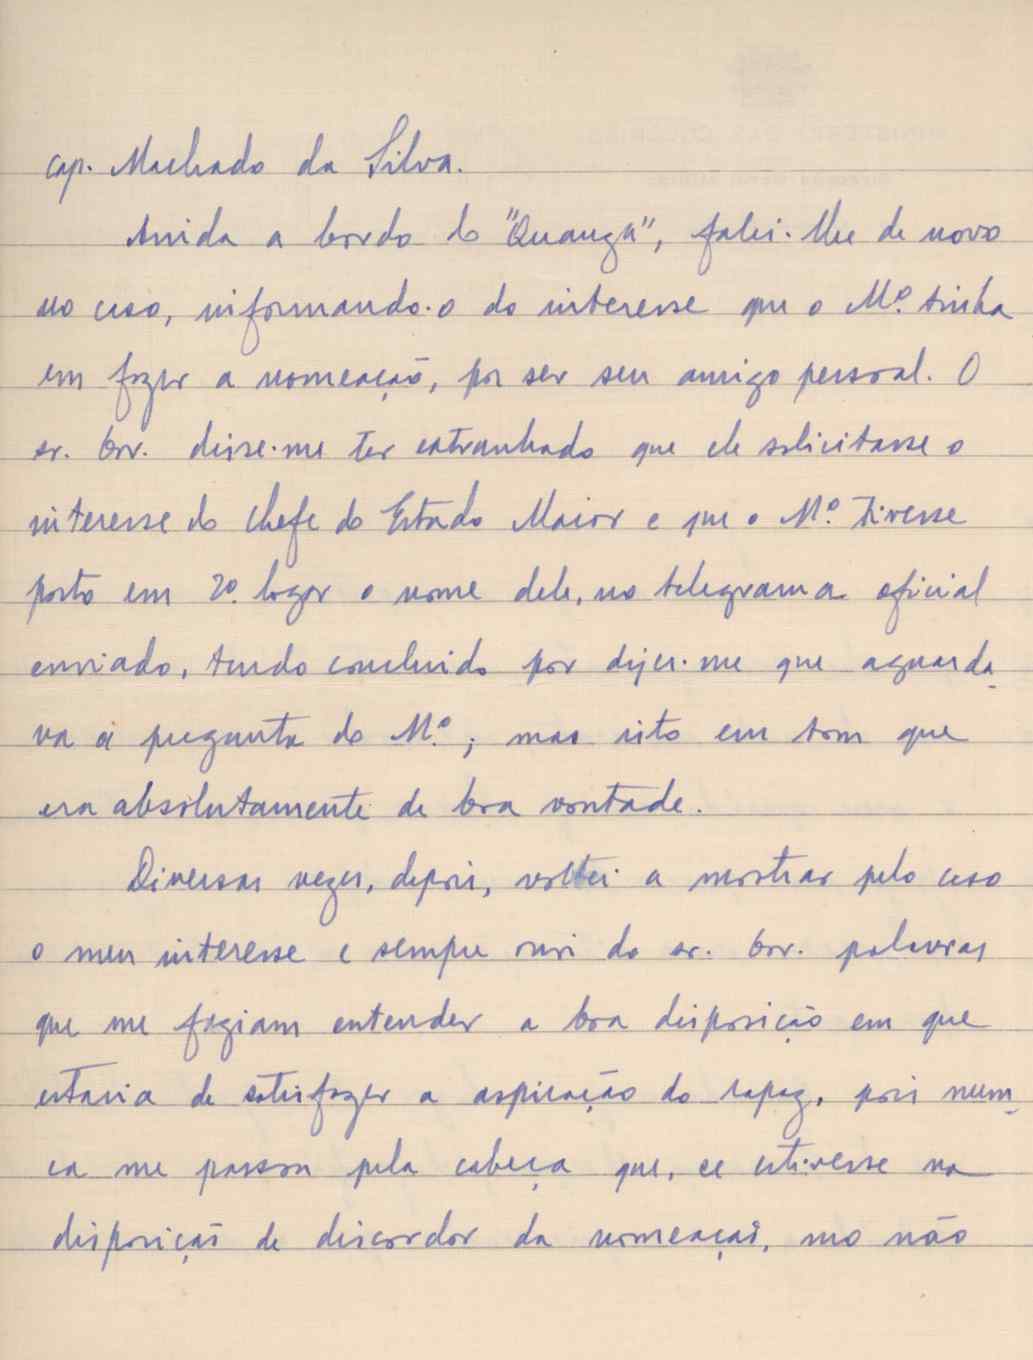 cap. Machado da Silva.
Ainda a bordo do "Quanza", falei-lhe de novo
no caso, informando-o do interesse que o Mº. tinha
em fazer a nomeação, por ser seu amigo pessoal. O
sr. Gov. disse-me ter estranhado que ele solicitasse o
interesse do Chefe do Estado Maior e que o Mº. tivesse
posto em 2º. logar o nome dele, no telegrama oficial
enviado, tendo concluido por dizer-me que aguarda-
va a pregunta do Mº.; mas isto em tom que
era absolutamente de boa vontade.
Diversas vezes, depois, voltei a mostrar pelo caso
o meu interesse e sempre ouvi do sr. Gov. palavras
que me faziam entender a boa disposição em que
estaria de satisfazer a aspiração do rapaz, pois nun-
ca me passou pela cabeça que, se estivesse na
disposição de discordar da nomeação, mo não